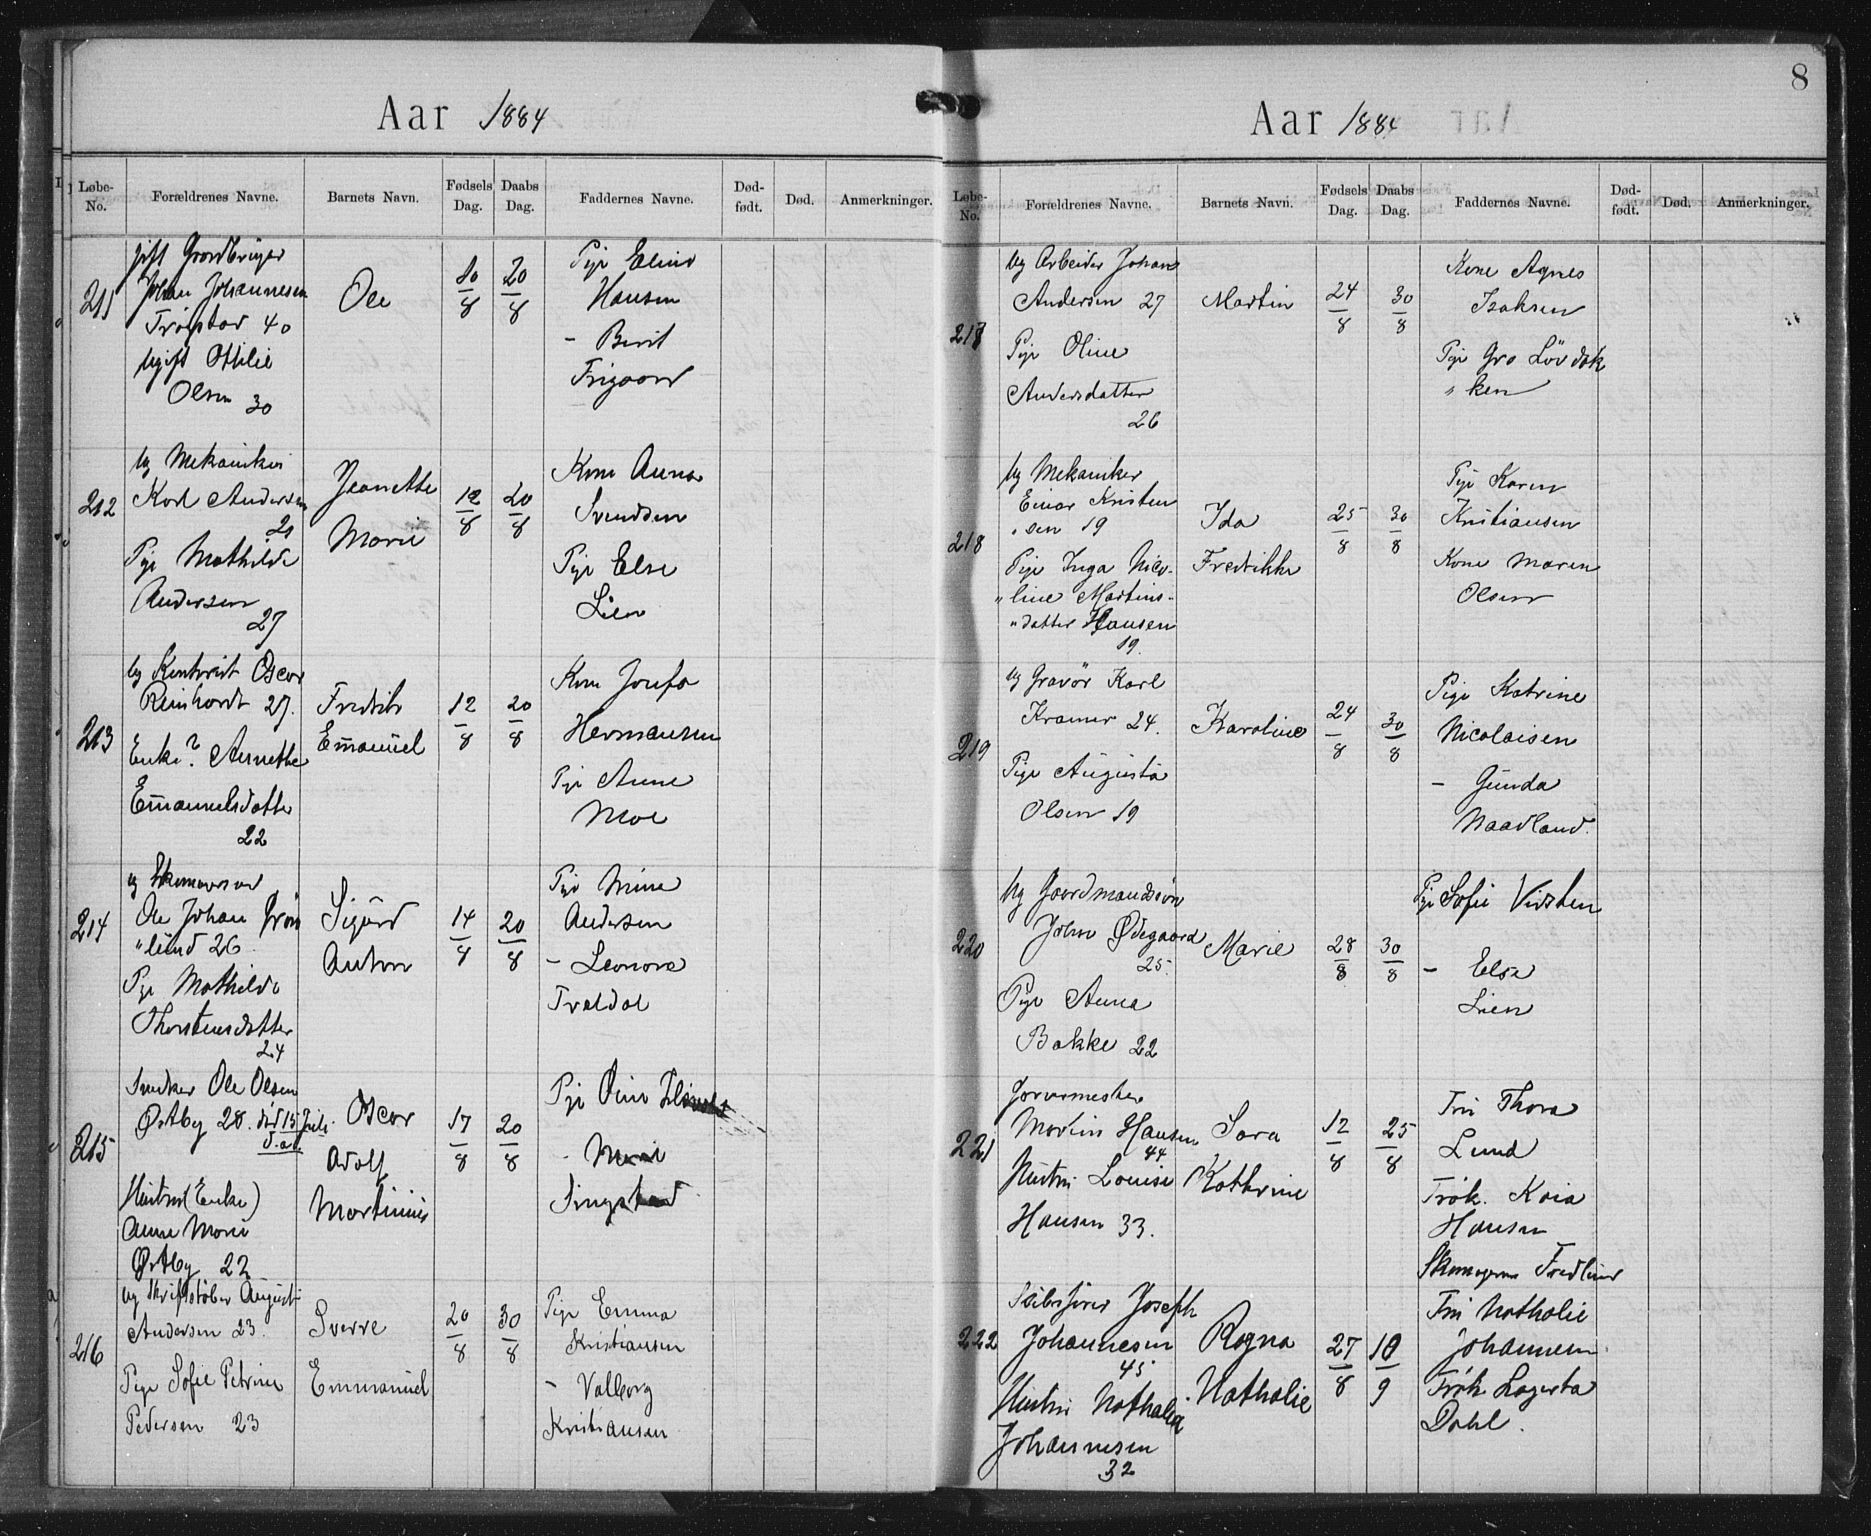 8
Aar 1884
Løbe-No. Forældrenes Navne. Barnets Navn. Fødsels Dag. Daabs Dag. Faddernes Navne. Død-født. Død. Anmerkninger.
211
gift Gaardbruger
Johan Johannesen
Trøgstad 40
Ugift Othilie
Olsen 30
Ole
10/8
20/8
Pige
Hansen
- Berit
212
Ug Mekaniker
Karl Andersen
21
Pige Mathilde
Andersen
27
Jeanette
Marie
12/8
20/8
Kone Anna
Svendsen
Pige Else
Lien
213
Ug Oscar
Reinhardt 27.
Enke? Annette
Emanuelsdatter
22
Fredrik
Emanuel
12/8
20/8
Kone Josefa
Hermansen
Pige Anne
Moe
214
Ug Skomagersv
Ole Johan Grøn
"lund 26
Pige Mathilde
Thorstensdatter
24
Sigurd
Anton
14/8
20/8
Pige Mina
Andersen
- Leonora
Traldal
215
Snedker Ole Olsen
Østby 28. død 15 Juli
d.a.
Hustru (Enke)
Anne Marie
Østby 22
Oscar
Adolf
Martinius
17/8
20/8
Pige
- Marie
216
Ug Skriftstøber August
Andersen 23.
Pige Sofie Petrine
Pedersen 23
Sverre
Emmanuel
20/8
30/8
Pige Emma
Kristiansen
- Valborg
Kristiansen
Aar 1884
Løbe-No. Forældrenes Navne. Barnets Navn. Fødsels Dag. Daabs Dag. Faddernes Navne. Død-født. Død. Anmerkninger.
217
Ug Arbeider Johan
Andersen 27
Pige Oline
Andersdatter
26
Martin
24/8
30/8
Kone Agnes
Isaksen
Pige Gro Løvdok
"ken
218
Ug Mekaniker
Einar Kristen
"sen 19
Pige Inga Nico-
"line Martins-
"datter Hansen
19.
Ida
Fredrikke
25/8
30/8
Pige Karen
Kristiansen
Kone Maren
Olsen
219
Ug Gravør Karl
Kramer 24.
Pige Augusta
Olsen 19
Karoline
24/8
30/8
Pige Katrine
Nicolaisen
- Gunda
Naadland.
220
Ug Gaardmandssøn
Johan Ødegaard
25.
Pige Anna
Bakke 22
Marie
28/8
30/8
Pige Sofie Vidsten
- Elsa
Lien
221
Garvermester
Martin Hansen
44
Hustru Louise
Hansen 33.
Sara
Kathrine
12/8
25/8
Fru Thora
Lund
Frøk. Kaia
Hansen
Skomager Fredlund
222
Skibsfører Joseph
Johannesen
45
Hustru Nathalia
Johannesen
32
Ragna
Nathalie
27/8
10/9
Fru Nathalie
Johannesen
Frøk Lagerta
Dahl.